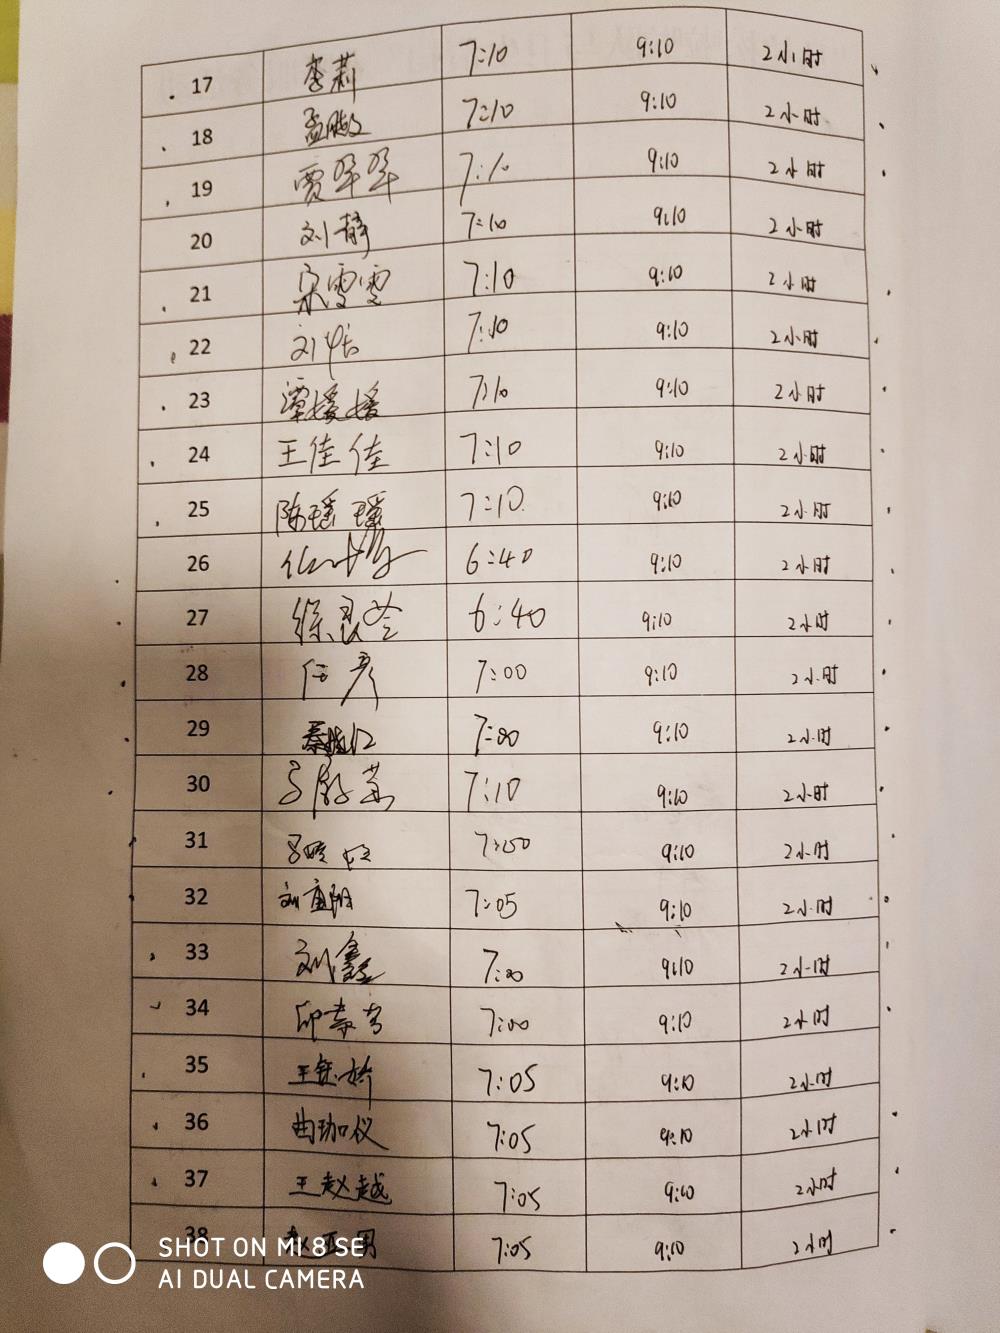 17 李莉 7:10 9:10 2小时
18 7:10 9:10 2小时
19 贾翠翠 7:10 9:10 2小时
20 刘静 7:10 9:10 2小时
21 宋雯雯 7:10 9:10 2小时
22 刘 7:10 9:10 2小时
23 谭媛媛 7:10 9:10 2小时
24 王佳佳 7:10 9:10 2小时
25 陈瑶瑶 7:10 9:10 2小时
26 6:40 9:10 2小时
27 徐良苓 6:40 9:10 2小时
28 任彦 7:00 9:10 2小时
29 7:00 9:10 2小时
30 7:10 9:10 2小时
31 7:00 9:10 2小时
32 刘重阳 7:05 9:10 2小时
33 刘鑫 7:00 9:10 2小时
34 7:00 9:10 2小时
35 王钰婷 7:05 9:10 2小时
36 曲珈仪 7:05 9:10 2小时
37 王赵越 7:05 9:10 2小时
38 亚男 7:05 9:10 2小时
SHOT ON MI 8 SE
AI DUAL CAMERA